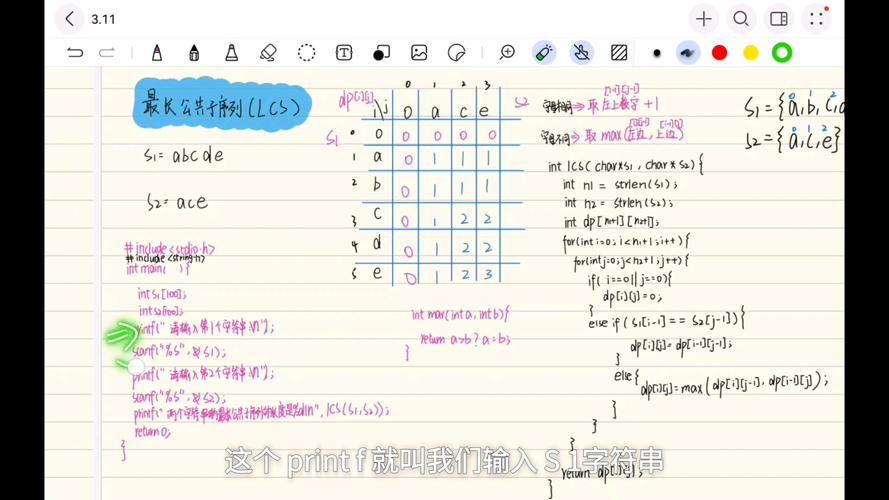 3.11
最长公共子序列(LCS)
S1 = abcde
S2 = ace
dp[i][j]
S1
S2
0 1 2 3
i\j 0 a c e
0 0 0 0 0 0
1 a 0 1 1 1
2 b 0 1 1 1
3 c 0 1 2 2
4 d 0 1 2 2
5 e 0 1 2 3
[i-1][j-1]
⇒ 取左上数字 +1
⇒ 取 max(左边, 上边)
S1 = {a, b, c, d
0 1 2
S2 = {a, c, e}
0 1 2
#include <stdio.h>
#include <string.h>
int main( ){
int s1[100];
int s2[100];
printf(" 请输入第1个字符串\n");
scanf("%s", &s1);
printf(" 请输入第2个字符串\n");
scanf("%s", &s2);
printf(" 两个字符串的最长公共子序列的长度是%d\n", LCS(S1, S2));
return 0;
}
int max(int a, int b){
return a>b? a=b;
}
int LCS( char*s1, char* s2){
int n1 = strlen(s1);
int n2 = strlen(s2);
int dp[n1+1][n2+1];
for(int i=0; i<n1+1; i++){
for(int j=0; j<n2+1; j++){
if( i==0 || j==0){
dp[i][j]=0;
}
else if( s1[i-1] == s2[j-1]){
dp[i][j]=dp[i-1][j-1];
}
else{
dp[i][j]=max(dp[i][j-1], dp[i-1][j]);
}
}
}
return
}
这个 print f 就叫我们输入 S 1字符串